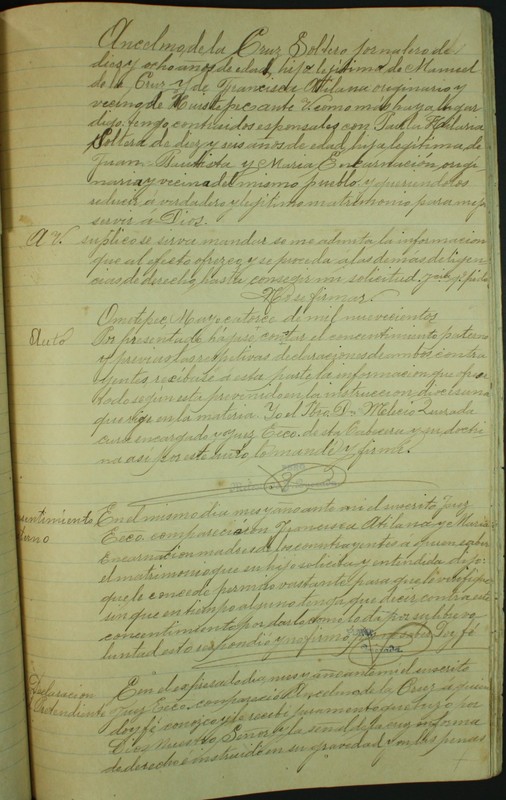 Ancelmo de la Cruz Soltero jornalero de
diez y ocho años de edad, hijo lejitimo de Manuel
de la Cruz y de Francisca Atilana originario y
vecino de Huistepec ante U como mas haya lugar
digo: tengo contraidos esponsales con Paula Hilaria
Soltera de diez y seis años de edad, hija lejitima de
Juan Bautista y Maria Encarnación, origi
naria y vecina del mismo pueblo, y queriendolos
reducir a verdadero y lejitimo matrimonio para mejor
servir a Dios.
A V. suplico se sirva mandar se me admita la informacion
que al efecto ofrezco y se proceda a las demas dilijen
cias de derecho, hasta conseguir mi solicitud.
No se firmar.
Ometepec, Mayo catorce de mil novecientos
Auto Por presentado hágase constar el concentimiento paterno
y previas las respectivas declaraciones de ambos contra
yentes, recibase á esta parte la informacion que ofrece
todo segun esta prevenido en la instruccion diocesana
que rige en la materia. Yo el Pbro. D. Melecio Quezada
cura encargado y Juez Ecco. de esta Cabecera y su doctri
na asi por este auto, lo mandé y firmé.
sentimiento En el mismo dia mes y año ante mi el suscrito Juez
terno Ecco. comparecieron Francisca Atilana y Maria
Encarnacion madres de los contrayentes a quienes
el matrimonio que su hijo solicita y entendida dijo:
que le concede permiso bastante para que lo verifique
sin que en tiempo alguno tenga que decir contra este
consentimiento por darle como lo da por su libre vo
luntad esto respondió y no firmó por no saber Doy fé
Declaracion En el espresado dia mes y año ante mi el suscrito
Pretendiente Juez Ecco. comparecio Ancelmo de la Cruz a quien
doy fé conozco y le recibi juramento que hizo por
Dios Nuestro Señor y la señal de la cruz en forma
de derecho e instruido en su gravedad y en las penas